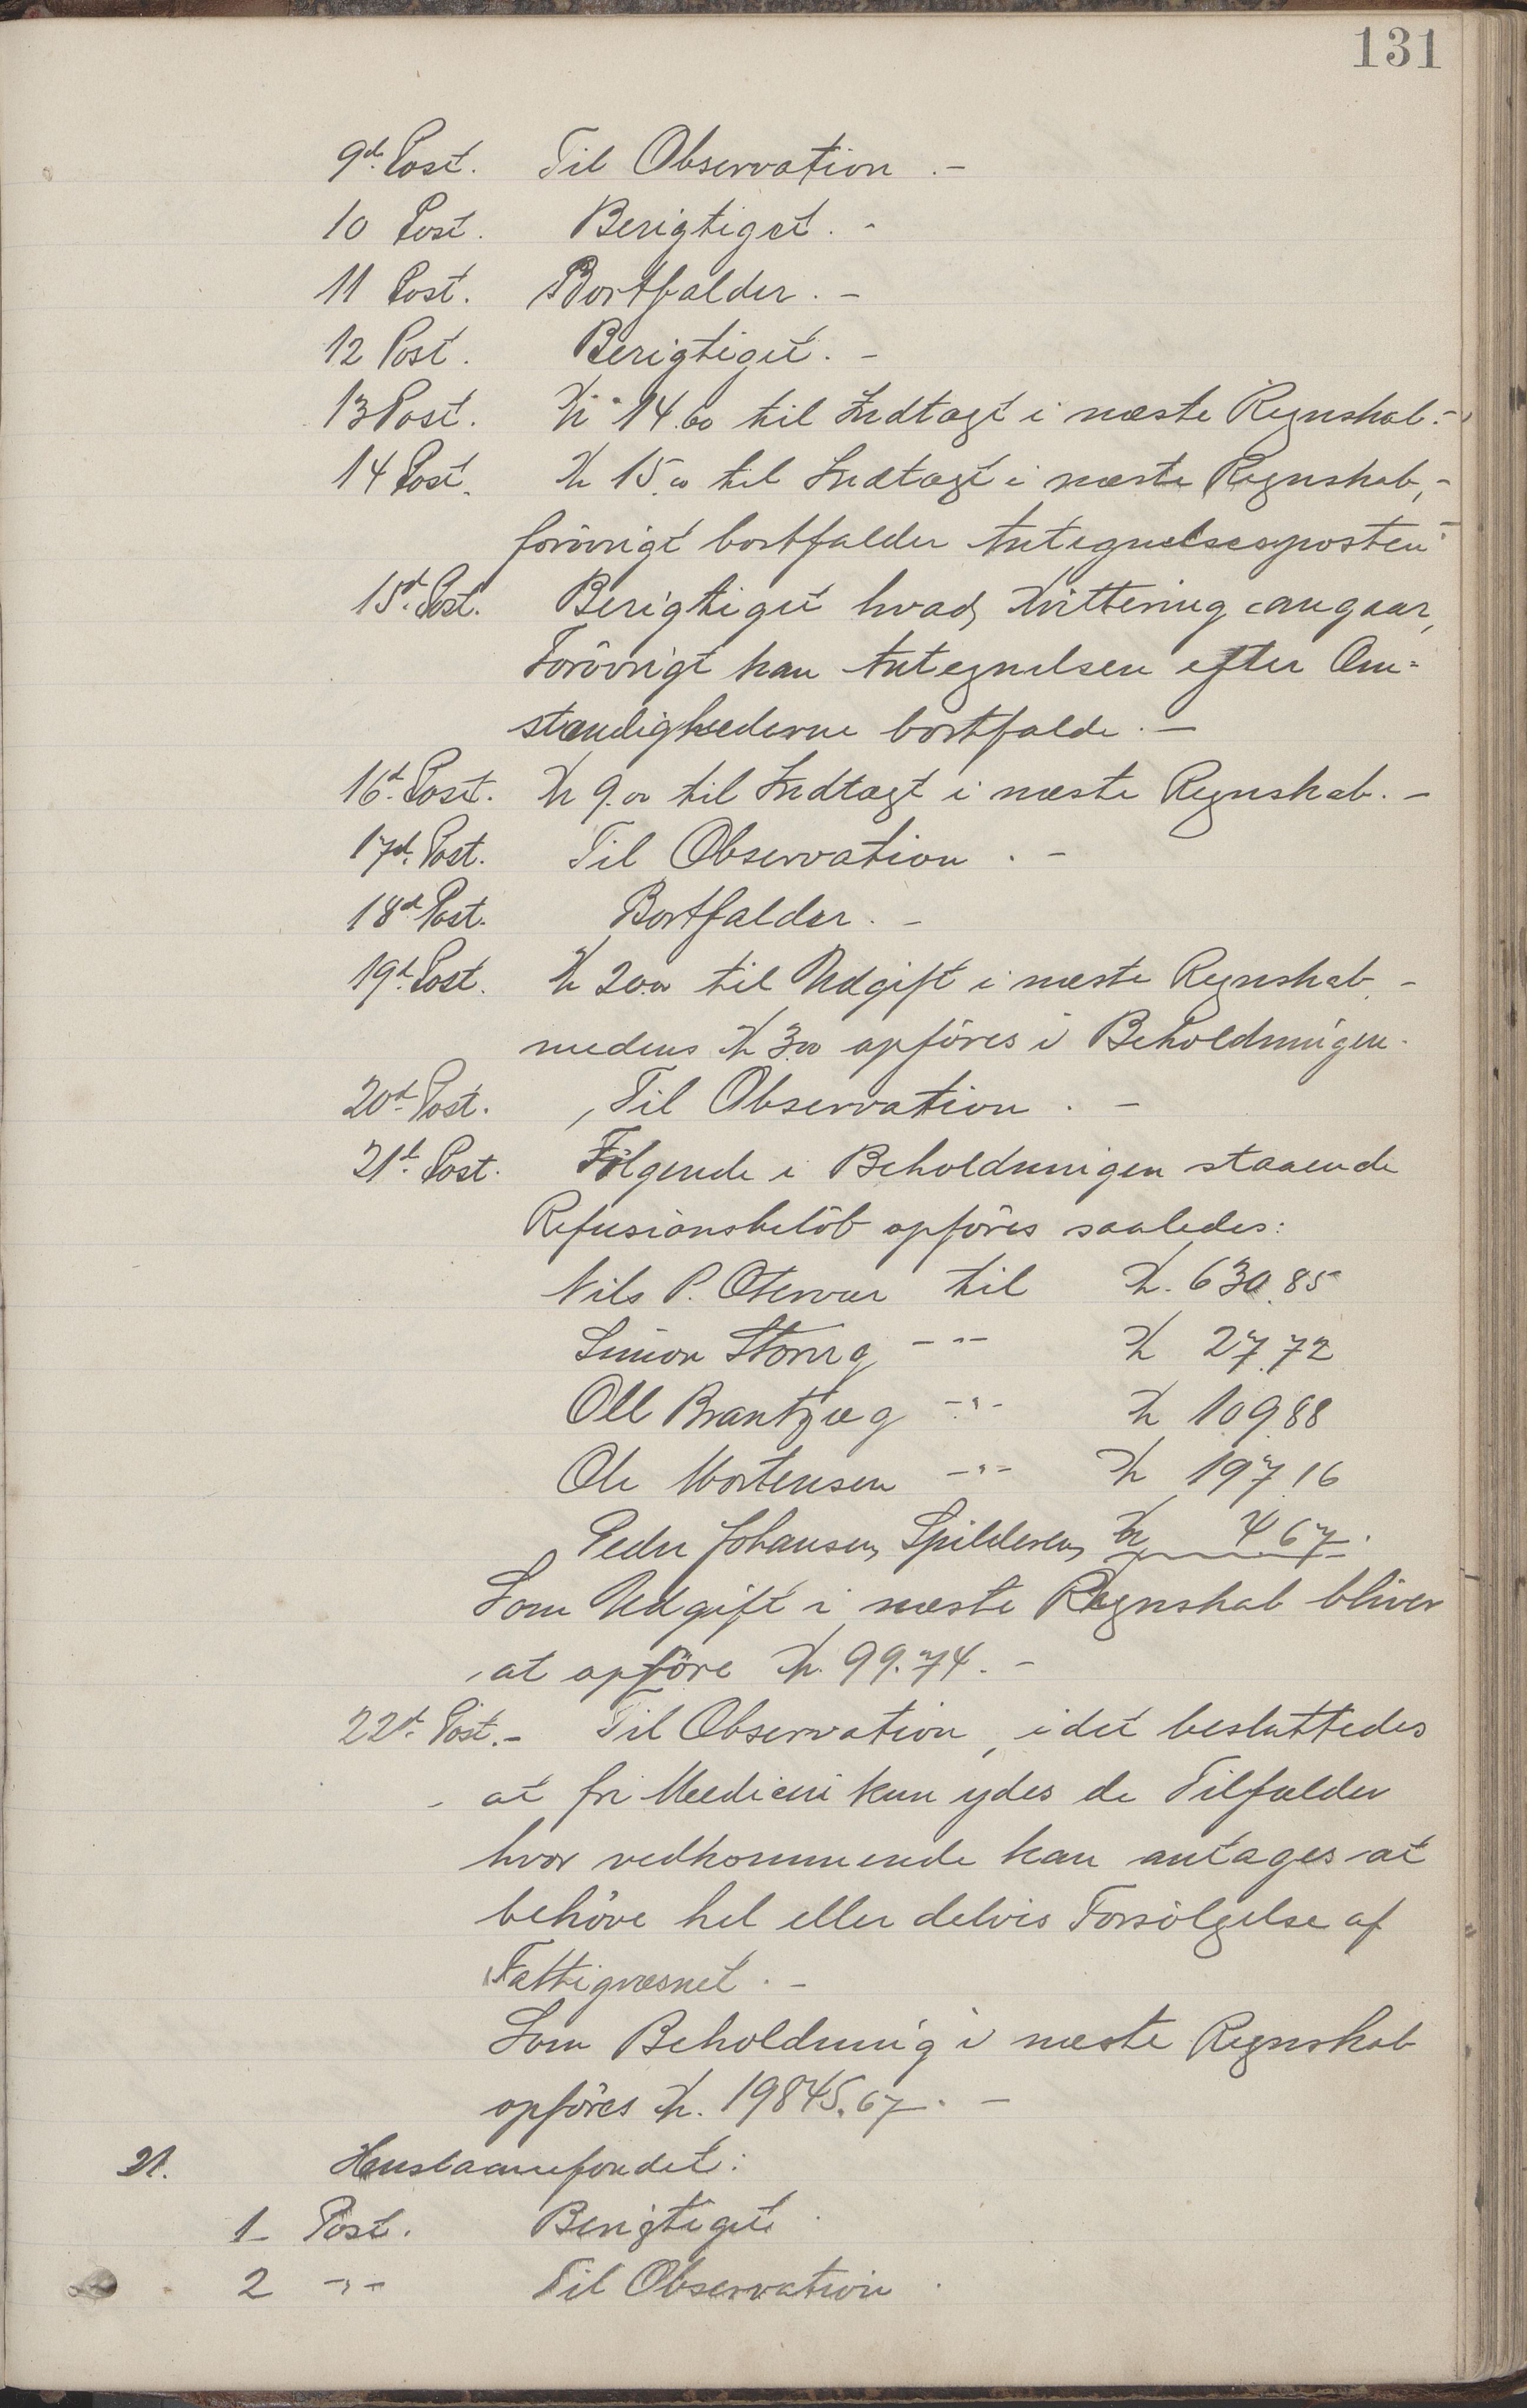 131
9d. Post. Til Observation . -
10 Post. Berigtiget. -
11 Post. Bortfalder. -
12 Post. Berigtiget. -
13 Post. Kr 14.60 til Indtægt i næste Regnskab. -
14 Post. Kr 15.00 til Indtægt i næste Regnskab, -
forövrigt bortfalder Antegnelsesposten -
15d. Post. Berigtiget hvad Kvittering angaar,
Forövrigt kan Antegnelsen efter Om=
stændighederne bortfalde. -
16d. Post. Kr 9.00 til Indtægt i næste Regnskab. -
17d. Post. Til Observation . -
18d Post. Bortfalder. -
19d. Post. Kr 20.00 til Udgift i næste Regnskab. -
medens Kr 3.00 opföres i Beholdningen.
20d. Post. Til Observation . -
21d. Post. Fölgende i Beholdningen staaende
Refusionsbelöb opföres saaledes:
Nils P. til Kr. 630.85
Simon Storng -"- Kr 27.72
Ole Brantzæg -"- Kr 109.88
Ole Mortensen -"- Kr 197.16
Peder Johansen, Spilderen, Kr 4.67.
Som Udgift i næste Regnskab bliver
at opföre Kr. 99.74. -
22d. Post. - Til Observation, idet besluttedes
at fri Medicin kun ydes de Tilfælder
hvor vedkommende kan antages at
behöve hel eller delvis Forsölgelse af
Fattigvæsnet. -
Som Beholdning i næste Regnskab
opföres Kr. 19845.67. -
21. Huslaanefondet:
1 - Post. Berigtiget.
2 -"- Til Observation.